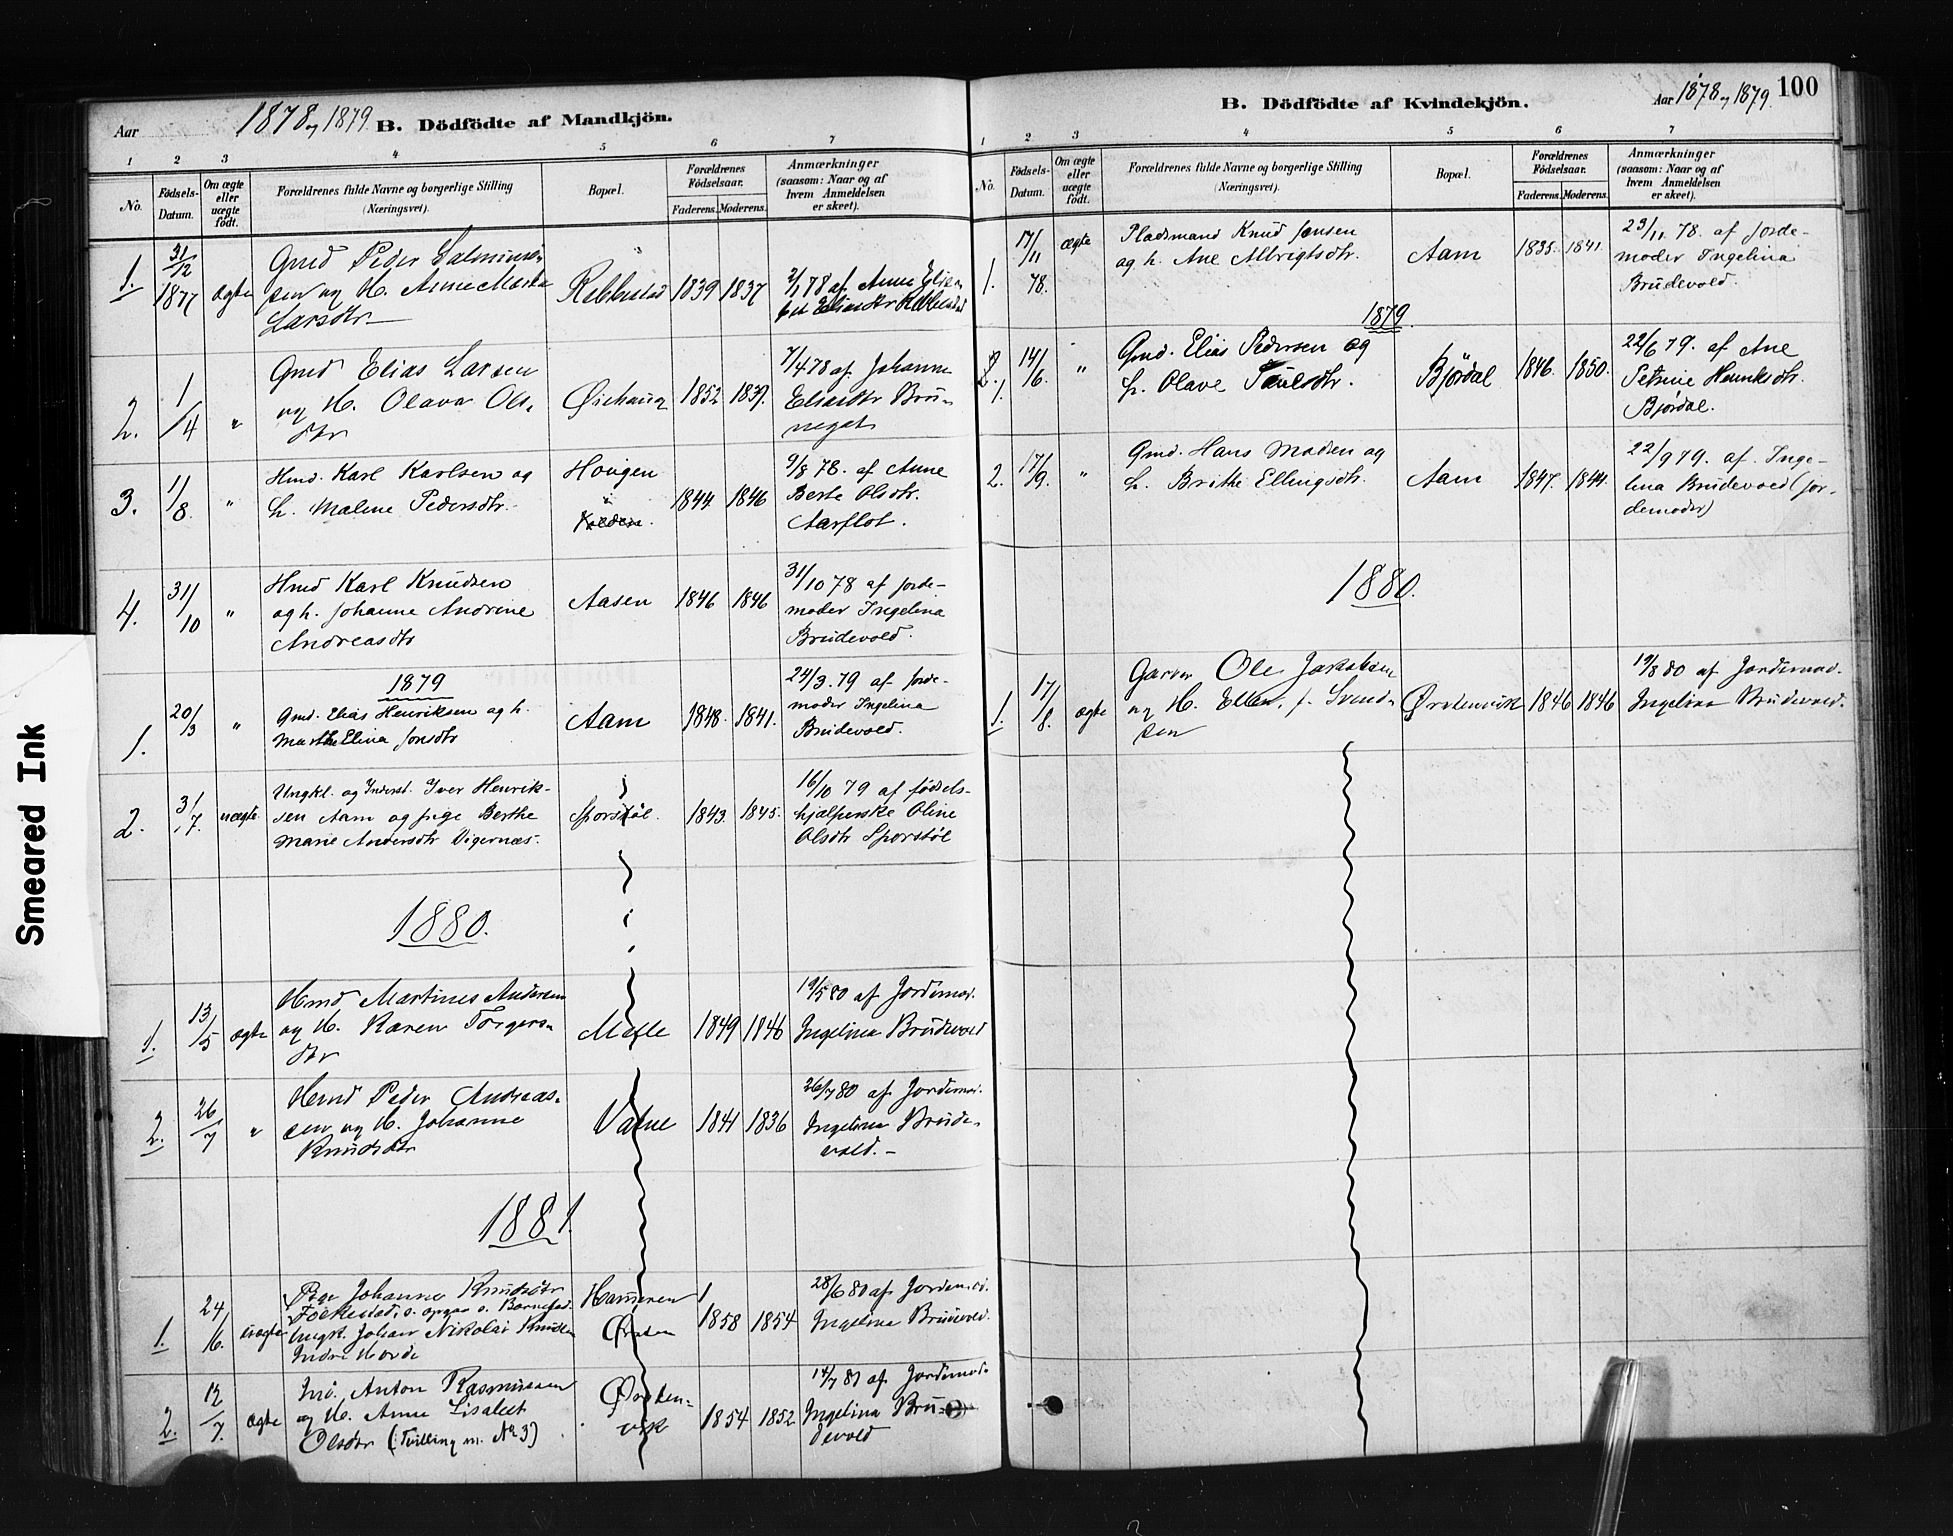 Smeared Ink
Aar 1878 og 1879. B. Dödfödte af Mandkjön.
1 2 3 4 5 6 7
No. Födsels-Datum. Om ægte eller uægte födt. Forældrenes fulde Navne og borgerlige Stilling (Næringsvet). Bopæl. Forældrenes Födselsaar. Faderens. Moderens. Anmærkninger (saasom: Naar og af hvem Anmeldelsen er skeet).
1. 31/12 1877 ægte
Gmd Peder Salmunds-
sen og H. Anne Marta
Larsdtr
Rebbestad 1839 1837
2/1 78 af Anne Elisa-
bet Eliasdtr Rebbestad
2. 1/4 "
Gmd Elias Larsen
og H. Olava Ols-
dtr
1852 1839.
7/4 78 af Johanne
Eliasdtr Bru-
neget
3. 11/8 "
Hmd. Karl Karlsen og
h. Malene Pedersdtr.
Hovigen
1844 1846
9/8 78. af Anne
Berte Olsdtr.
Aarflot.
4. 31/10 "
Hmd Karl Knudsen
og h. Johanne Andrine
Andreasdtr
Aasen 1846 1846
31/10 78 af Jorde-
moder Ingelina
Brudevold.
1879
1. 20/3 "
Gmd. Elias Henriksen og h.
Marthe Elina Jonsdtr
Aam 1848. 1841.
24/3. 79 af Jorde-
moder Ingelina
Brudevold.
2. 31/7. uægte
Ungkl. og Inderst. Iver Henrik-
sen Aam og pige Berthe
Marie Andersdtr Vigernæs.
Sporstöl. 1843. 1845.
16/10 79 af födsels-
hjælperske Oline
Olsdtr Sporstöl
1880.
1. 13/5 ægte
Hmd Martinus Andersen
og H. Karen Torgers-
dtr
Melle 1849 1846
19/5 80 af Jordemod.
Ingelina Brudevold
2. 26/7 "
Hmd Peder Andreas-
sen og H. Johanne
Knudsdtr
Vatne 1841 1836
26/7 80 af Jordemod.
Ingelina Brude-
vold.-
1881.
1. 24/6. uægte
Pige Johanne Knudsdtr
Folkestad, o. opgav s. Barnefad.
Ungk. Johan Nikolai Knudsen
Indre Hovde
Hamneren
Örsten
1858 1854
28/6 80 af Jordemod.
Ingelina Brudevold.
2. 12/7. ægte
Ind. Anton Rasmussen
og H. Anne Lisabet
Olsdtr (: Tvilling m. No 3)
Örsten-
vik
1854 1852
14/7 81 af Jordemod.
Ingelina Bru-
devold
B. Dödfödte af Kvindekjön. Aar 1878 og 1879. 100
1 2 3 4 5 6 7
No. Födsels-Datum. Om ægte eller uægte födt. Forældrenes fulde Navne og borgerlige Stilling (Næringsvet). Bopæl. Forældrenes Födselsaar. Faderens. Moderens. Anmærkninger (saasom: Naar og af hvem Anmeldelsen er skeet).
1. 17/11 78. ægte
Pladsmand Knud Jensen
og h. Ane Albrigtsdtr.
Aam 1835. 1841.
23/11. 78. af Jorde-
moder Ingelina
Brudevold.
1879.
1. 14/6. "
Gmd. Elias Pedersen og
h. Olave Paulsdtr.
Björdal 1846. 1850.
22/6 79. af Ane
Petrine Henriksdtr.
Björdal.
2. 17/9. "
Gmd. Hans Madsen og
h. Brithe Ellingsdtr.
Aam 1847. 1844.
22/9 79. af Inge-
lina Brudevold (jor-
demoder)
1880.
1. 17/8. ægte
Garver Ole Jakobsen
og H. Ellen, f. Svend-
sen
Örstenvik 1846 1846
19/8 80 af Jordemod.
Ingelina Brudevold.